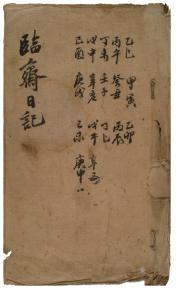 乙巳 甲寅 乙卯
丙午 癸丑 丙辰
丁未 壬子 丁巳
戊申 辛亥 戊午 辛酉
己酉 庚戌 己未 庚申
臨齋日記